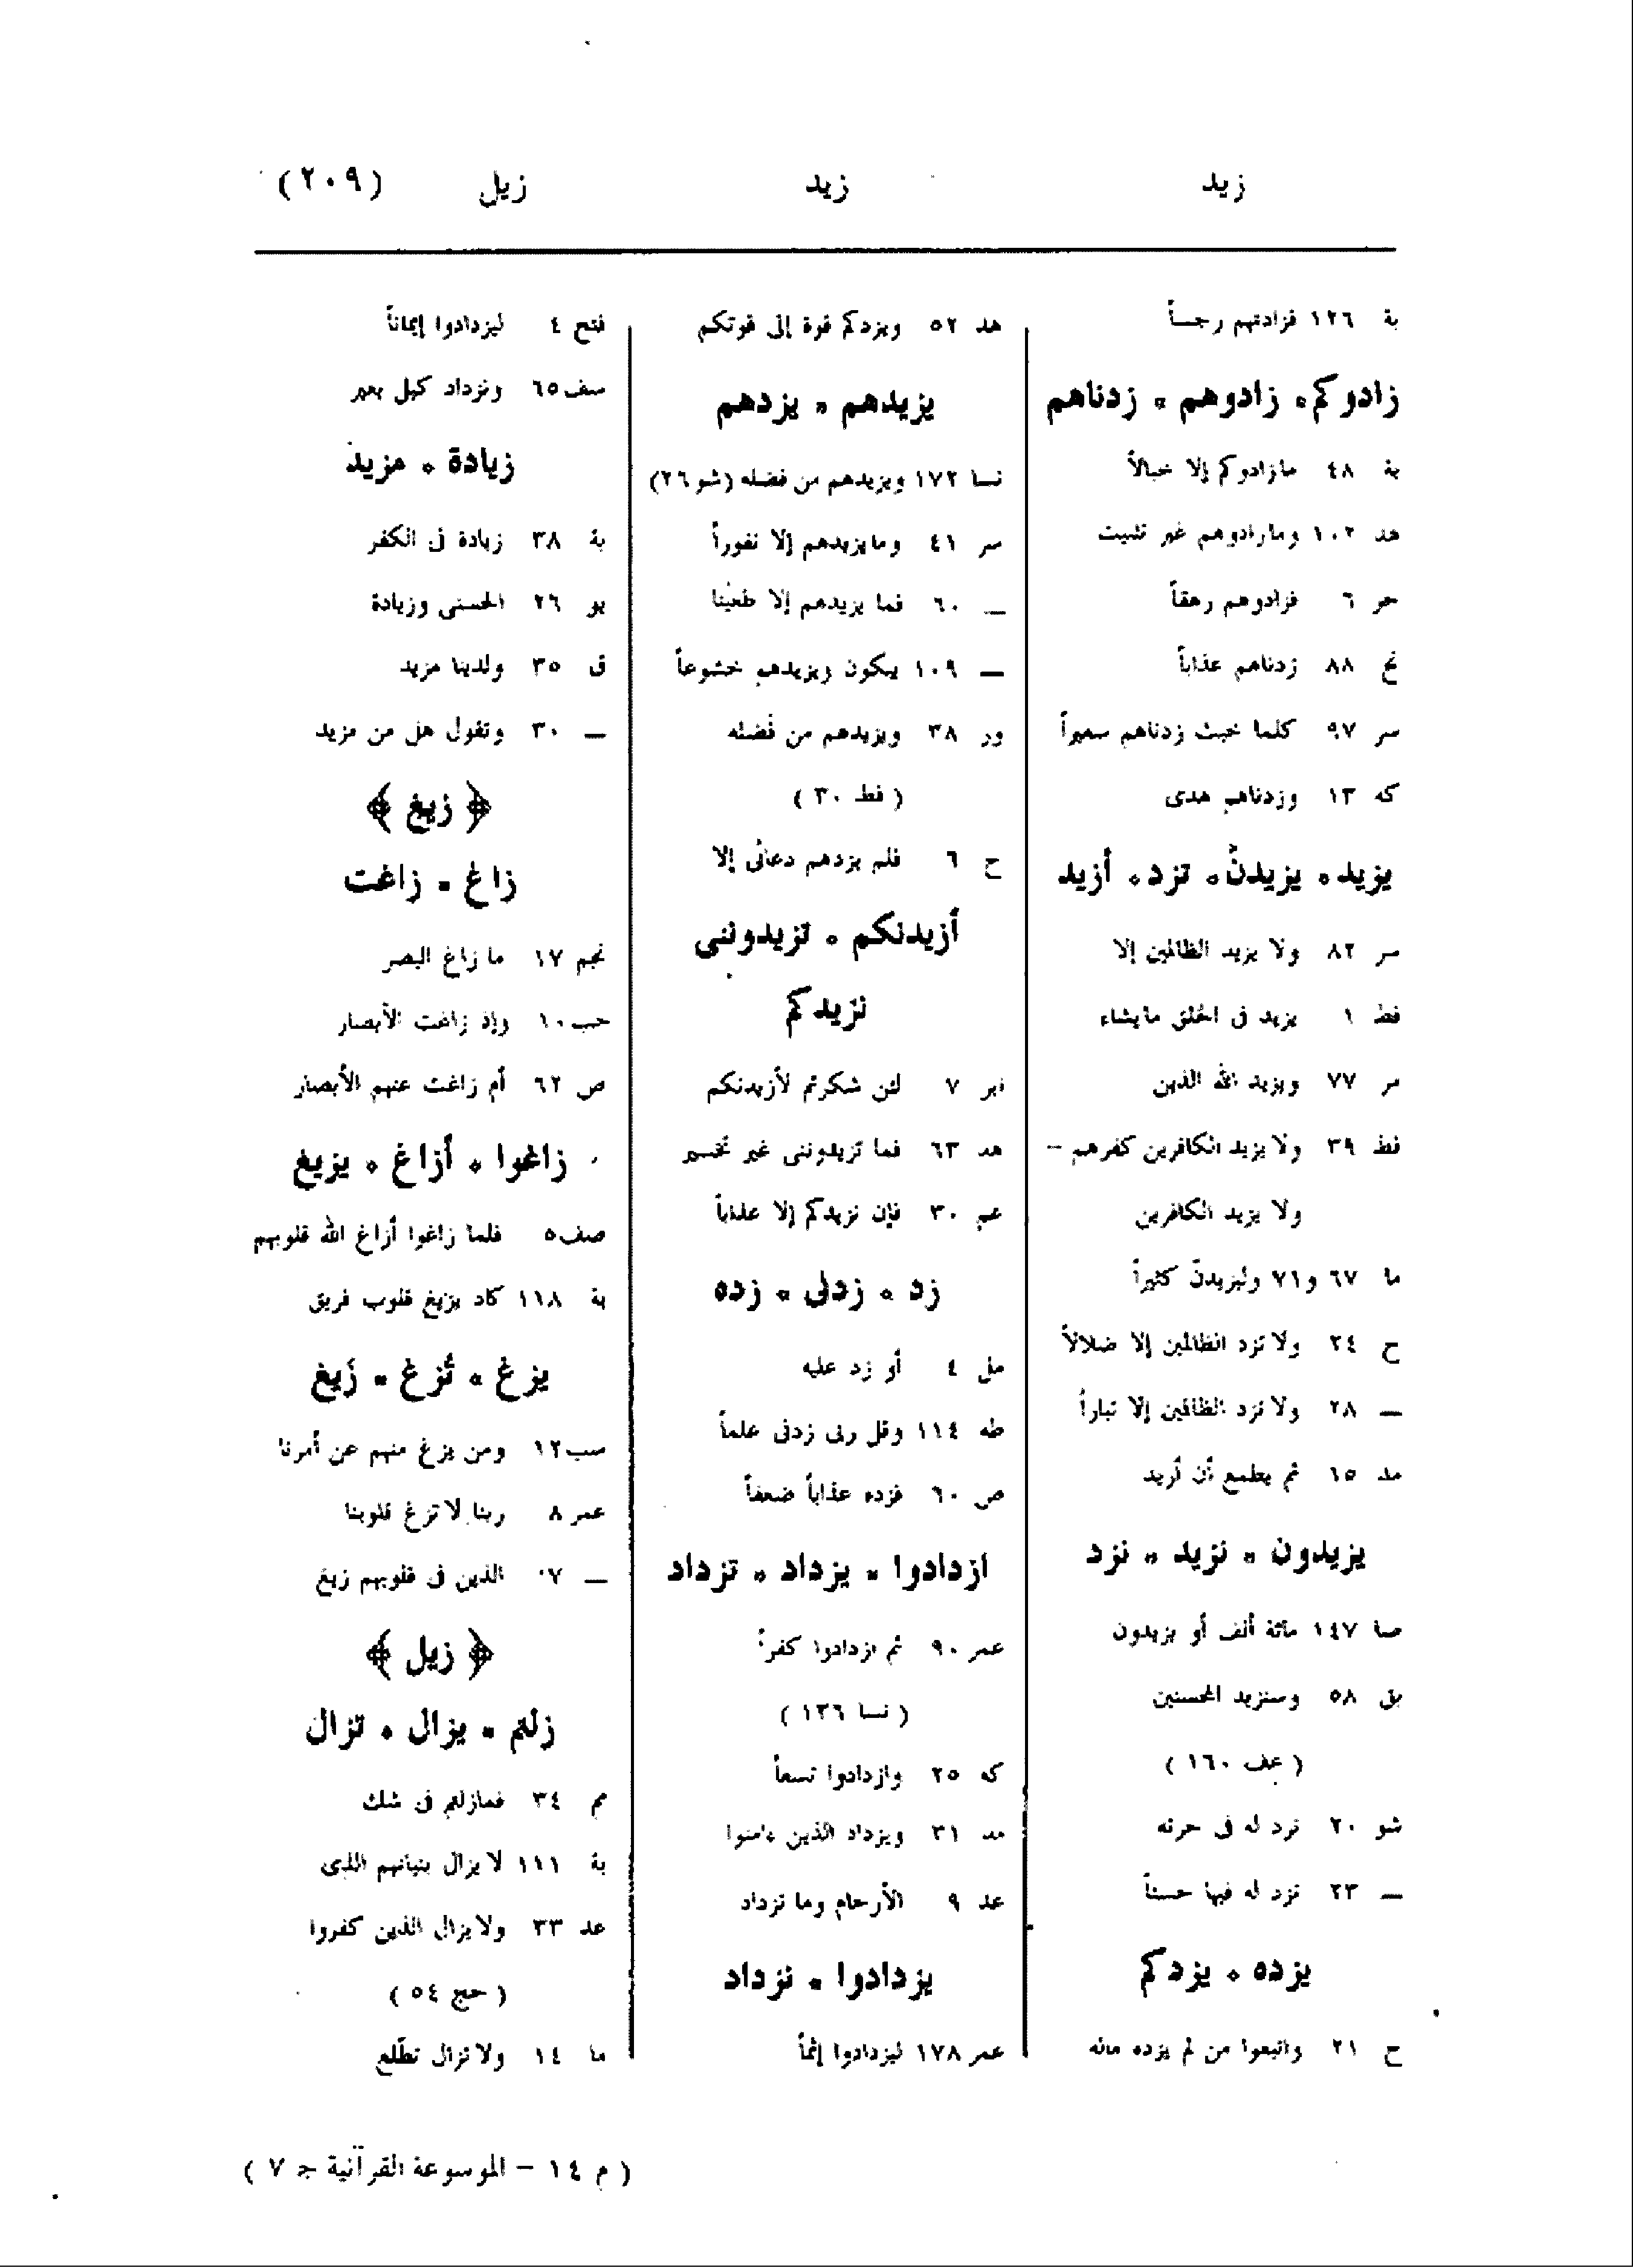 زيد
زيد
زيل (٢٠٩)
بة ١٢٦ فزادتهم رجساً
زادوكم، زادوهم، زدناهم
بة ٤٨ مازادوكم إلا خبالاً
هد ١٠٢ ومازادوهم غير تتبيت
حر ٦ فزادوهم رهقاً
نح ٨٨ زدناهم عذاباً
سر ٩٧ كلما خبت زدناهم سعيراً
كه ١٣ وزدناهم هدى
يزيد، يزيدنّ، تزد، أزيد
سر ٨٢ ولا يزيد الظالمين إلا
فط ١ يزيد فى الخلق مايشاء
مر ٧٧ ويزيد الله الذين
فط ٣٩ ولا يزيد الكافرين كفرهم –
ولا يزيد الكافرين
ما ٦٧ و٧١ وليزيدنّ كثيراً
ح ٢٤ ولا تزد الظالمين إلا ضلالاً
— ٢٨ ولا تزد الظالمين إلا تباراً
مد ١٥ ثم يطمع أن أزيد
يزيدون، نزيد، نزد
صا ١٤٧ مائة ألف أو يزيدون
بق ٥٨ وسنزيد المحسنين
( عف ١٦٠ )
شو ٢٠ نزد له فى حرثه
— ٢٣ نزد له فيها حسناً
يزده، يزدكم
ح ٢١ واتبعوا من لم يزده ماله
هد ٥٢ ويزدكم قوة إلى قوتكم
يزيدهم، يزدهم
نسا ١٧٢ ويزيدهم من فضله (شو ٢٦)
سر ٤١ ومايزيدهم إلا نفوراً
— ٦٠ فما يزيدهم إلا طغيٰنا
— ١٠٩ يبكون ويزيدهم خشوعاً
ور ٣٨ ويزيدهم من فضله
( فط ٣٠ )
ح ٦ فلم يزدهم دعائى إلا
أزيدنكم، تزيدوننى
نزيدكم
ابر ٧ لئن شكرتم لأزيدنكم
هد ٦٣ فما تزيدوننى غير تخسير
عم ٣٠ فلن نزيدكم إلا عذاباً
زد، زدنى، زده
مل ٤ أو زد عليه
طه ١١٤ وقل ربى زدنى علماً
ص ٦٠ فزده عذاباً ضعفاً
ازدادوا، يزداد، تزداد
عمر ٩٠ ثم ازدادوا كفراً
( نسا ١٣٦ )
كه ٢٥ وازدادوا تسعاً
مد ٣١ ويزداد الذين ءامنوا
عد ٩ الأرحام وما تزداد
يزدادوا، نزداد
عمر ١٧٨ ليزدادوا إثماً
فتح ٤ ليزدادوا إيماناً
سف ٦٥ ونزداد كيل بعير
زيادة، مزيد
بة ٣٨ زيادة فى الكفر
يو ٢٦ الحسنى وزيادة
ق ٣٥ ولدينا مزيد
— ٣٠ وتقول هل من مزيد
﴿ زيغ ﴾
زاغ، زاغت
نجم ١٧ ما زاغ البصر
حب ١٠ وإذ زاغت الأبصار
ص ٦٢ أم زاغت عنهم الأبصار
زاغوا، أزاغ، يزيغ
صف ٥ فلما زاغوا أزاغ الله قلوبهم
بة ١١٨ كاد يزيغ قلوب فريق
يزغ، تزغ، زيغ
سب ١٢ ومن يزغ منهم عن أمرنا
عمر ٨ ربنا لا تزغ قلوبنا
— ٧ الذين فى قلوبهم زيغ
﴿ زيل ﴾
زلتم، يزال، تزال
مم ٣٤ فمازلتم فى شك
بة ١١١ لا يزال بنيانهم الذى
عد ٣٣ ولا يزال الذين كفروا
( حج ٥٤ )
ما ١٤ ولا تزال تطّلع
( م ١٤ – الموسوعة القرآنية ج ٧ )